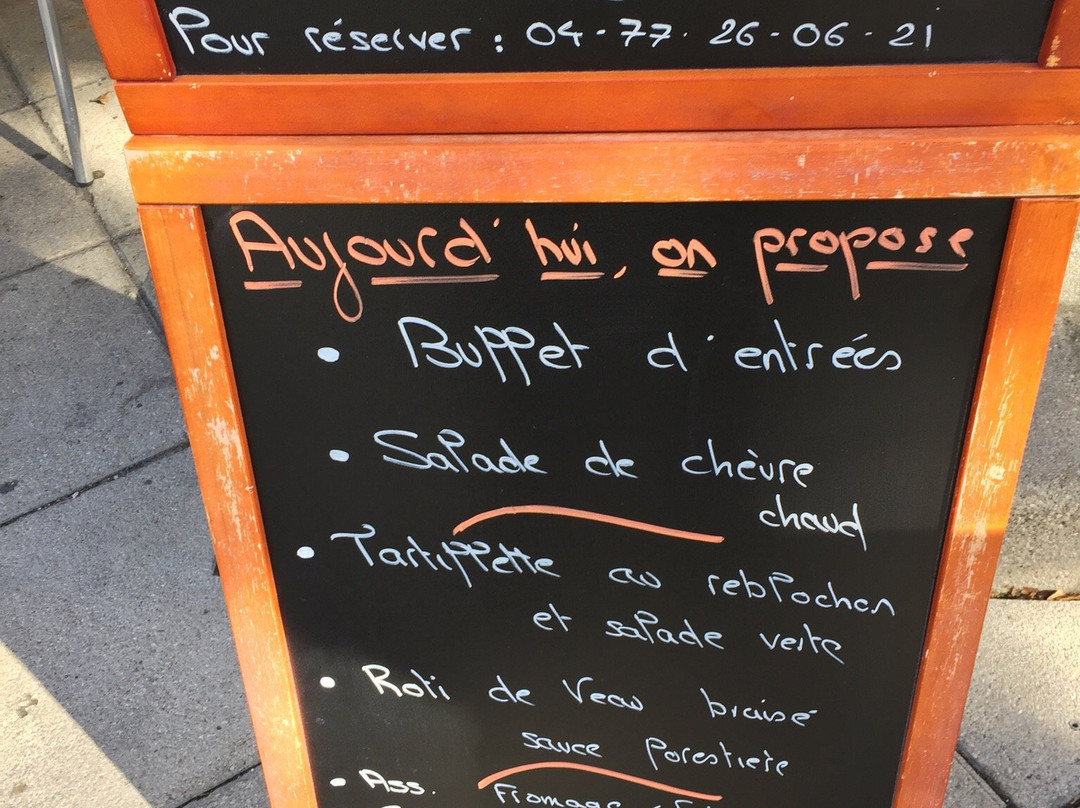 Pour réserver : 04-77.26-06-21
Aujourd'hui, on propose
• Buffet d'entrées
• Salade de chèvre
chaud
• Tartiflette au reblochon
et salade verte
• Roti de Veau braisé
sauce forestière
• Ass. Fromage